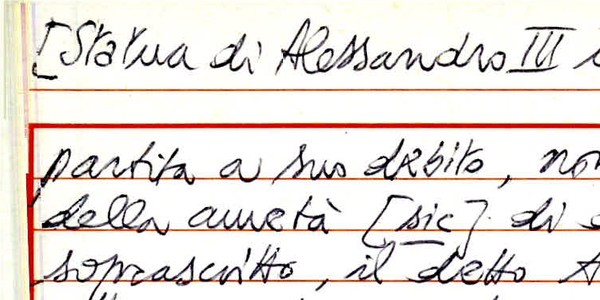 [Statua di Alessandro III
partita a suo debito, non
della auretà [sic] di
soprascritto, il detto